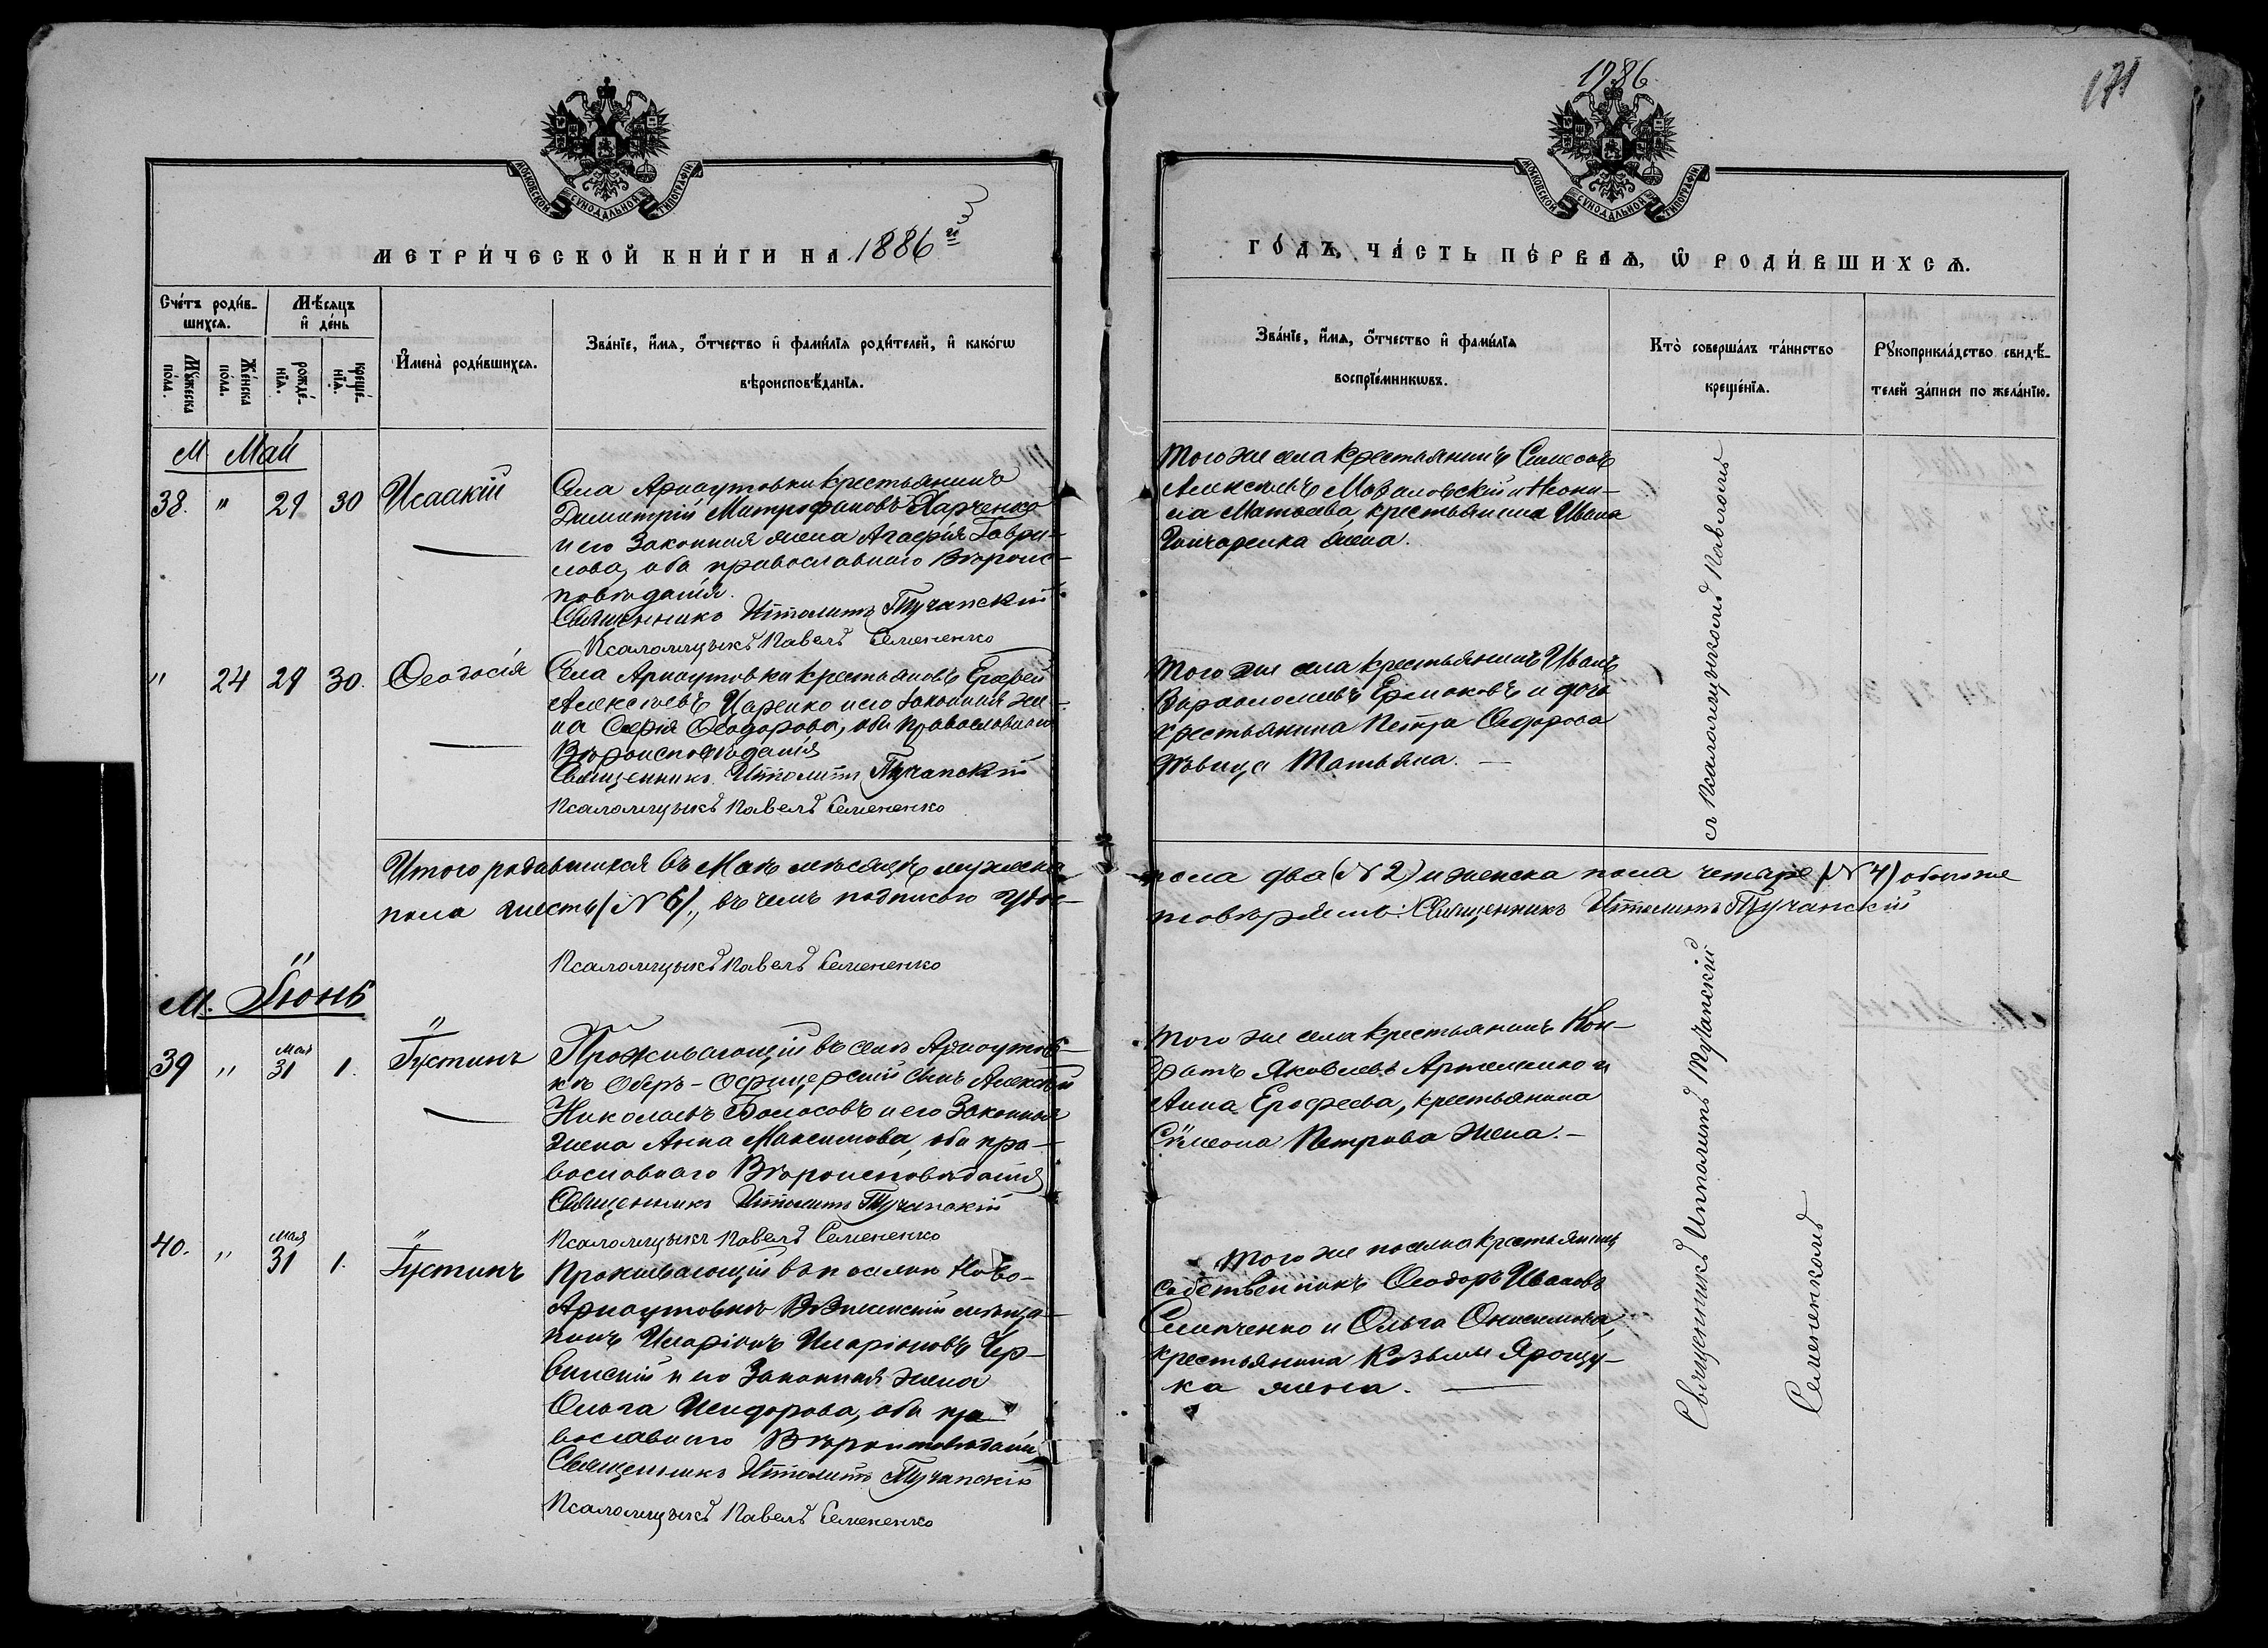 1886
171
МОСКОВСКОЙ СѴНОДАЛЬНОЙ ТИПОГРАФІИ
МОСКОВСКОЙ СѴНОДАЛЬНОЙ ТИПОГРАФІИ
МЕТРИ́ЧЕСКОЙ КНИ́ГИ НА 1886 й
ГО́ДЪ, ЧА́СТЬ ПЕ́РВАѦ, Ѡ РОДИ́ВШИХСѦ.
Сче́тъ роди́в-
шихсѧ.
Мѣ́сяцъ
и҆ де́нь
Мꙋ́жеска
по́ла.
Же́нска
по́ла.
рожде́-
нїѧ.
креще́-
нїѧ.
И҆мена̀ роди́вшихсѧ.
Зва́нїе, и҆́мѧ, ѻ҆́тчество и҆ фами́лїѧ роди́телей, и҆ како́гѡ
вѣроисповѣ́данїѧ.
Зва́нїе, и҆́мѧ, ѻ҆́тчество и҆ фами́лїѧ
воспрїе́мникѡвъ.
Кто̀ соверша́лъ та́инство
креще́нїѧ.
Рꙋкоприкла́дство свидѣ́-
телей за́писи по жела́нїю.
М Май
38. " 29 30 Исаакій
Села Арнаутовки крестьянинъ
Димитрій Митрофановъ Харченко
и его Законная жена Агафія Гаври-
лова, оба православнаго Вѣроис-
повѣданія.
Священникъ Ипполитъ Тучапскій
Псаломщикъ Павелъ Семененко
Того же села крестьянинъ Симеонъ
Алексѣевъ и
Матвѣева, крестьянина Ивана
Гончаренка жена.
" 24 29 30. Ѳеодосія
Села Арнаутовки крестьянинъ Ерофей
Алексѣевъ Царенко и его законная же-
на Ѳеодорова, оба Православнаго
Вѣроисповѣданія
Священникъ Ипполитъ Тучапскій
Псаломщикъ Павелъ Семененко
Того же села крестьянинъ Иванъ
Варѳоломеевъ Ермаковъ и дочь
крестьянина Петра Сидорова
дѣвица Татьяна.
Итого родившихся въ Маѣ мѣсяцѣ мужеска
пола два (№ 2) и женска пола четыре (№ 4) обоего же
пола шесть (№ 6)., въ чемъ подписью удос-
товѣряемъ: Священникъ Ипполитъ Тучапскій
Псаломщикъ Павелъ Семененко
М. Іюнь
39 " Мая 31 1. Іустинъ
Проживающій въ селѣ Арнаутов-
кѣ Оберъ-Офицерскій сынъ Алексѣй
Николаевъ Волосовъ и его Законная
жена Анна Максимова, оба пра-
вославнаго Вѣроисповѣданія
Священникъ Ипполитъ Тучапскій
Псаломщикъ Павелъ Семененко
Того же села крестьянинъ Кон-
дратъ Яковлевъ и
Анна Ерофеева, крестьянина
Сѵмеона Петрова жена.-
40. " Мая 31 1. Іустинъ
Проживающій въ поселкѣ Ново-
Арнаутовкѣ мѣща-
нинъ Иларіонъ Иларіоновъ Чер-
винскій и его Законная жена
Ольга Исидорова, оба пра-
вославнаго Вѣроисповѣданія
Священникъ Ипполитъ Тучапскій
Псаломщикъ Павелъ Семененко
Того же поселка крестьянинъ
собственникъ Ѳеодоръ Ивановъ
и Ольга Онисимова,
крестьянина Козьмы Ярощу-
ка жена.
съ Псаломщикомъ Павломъ
Священникъ Ипполитъ Тучапскій
Семененкомъ